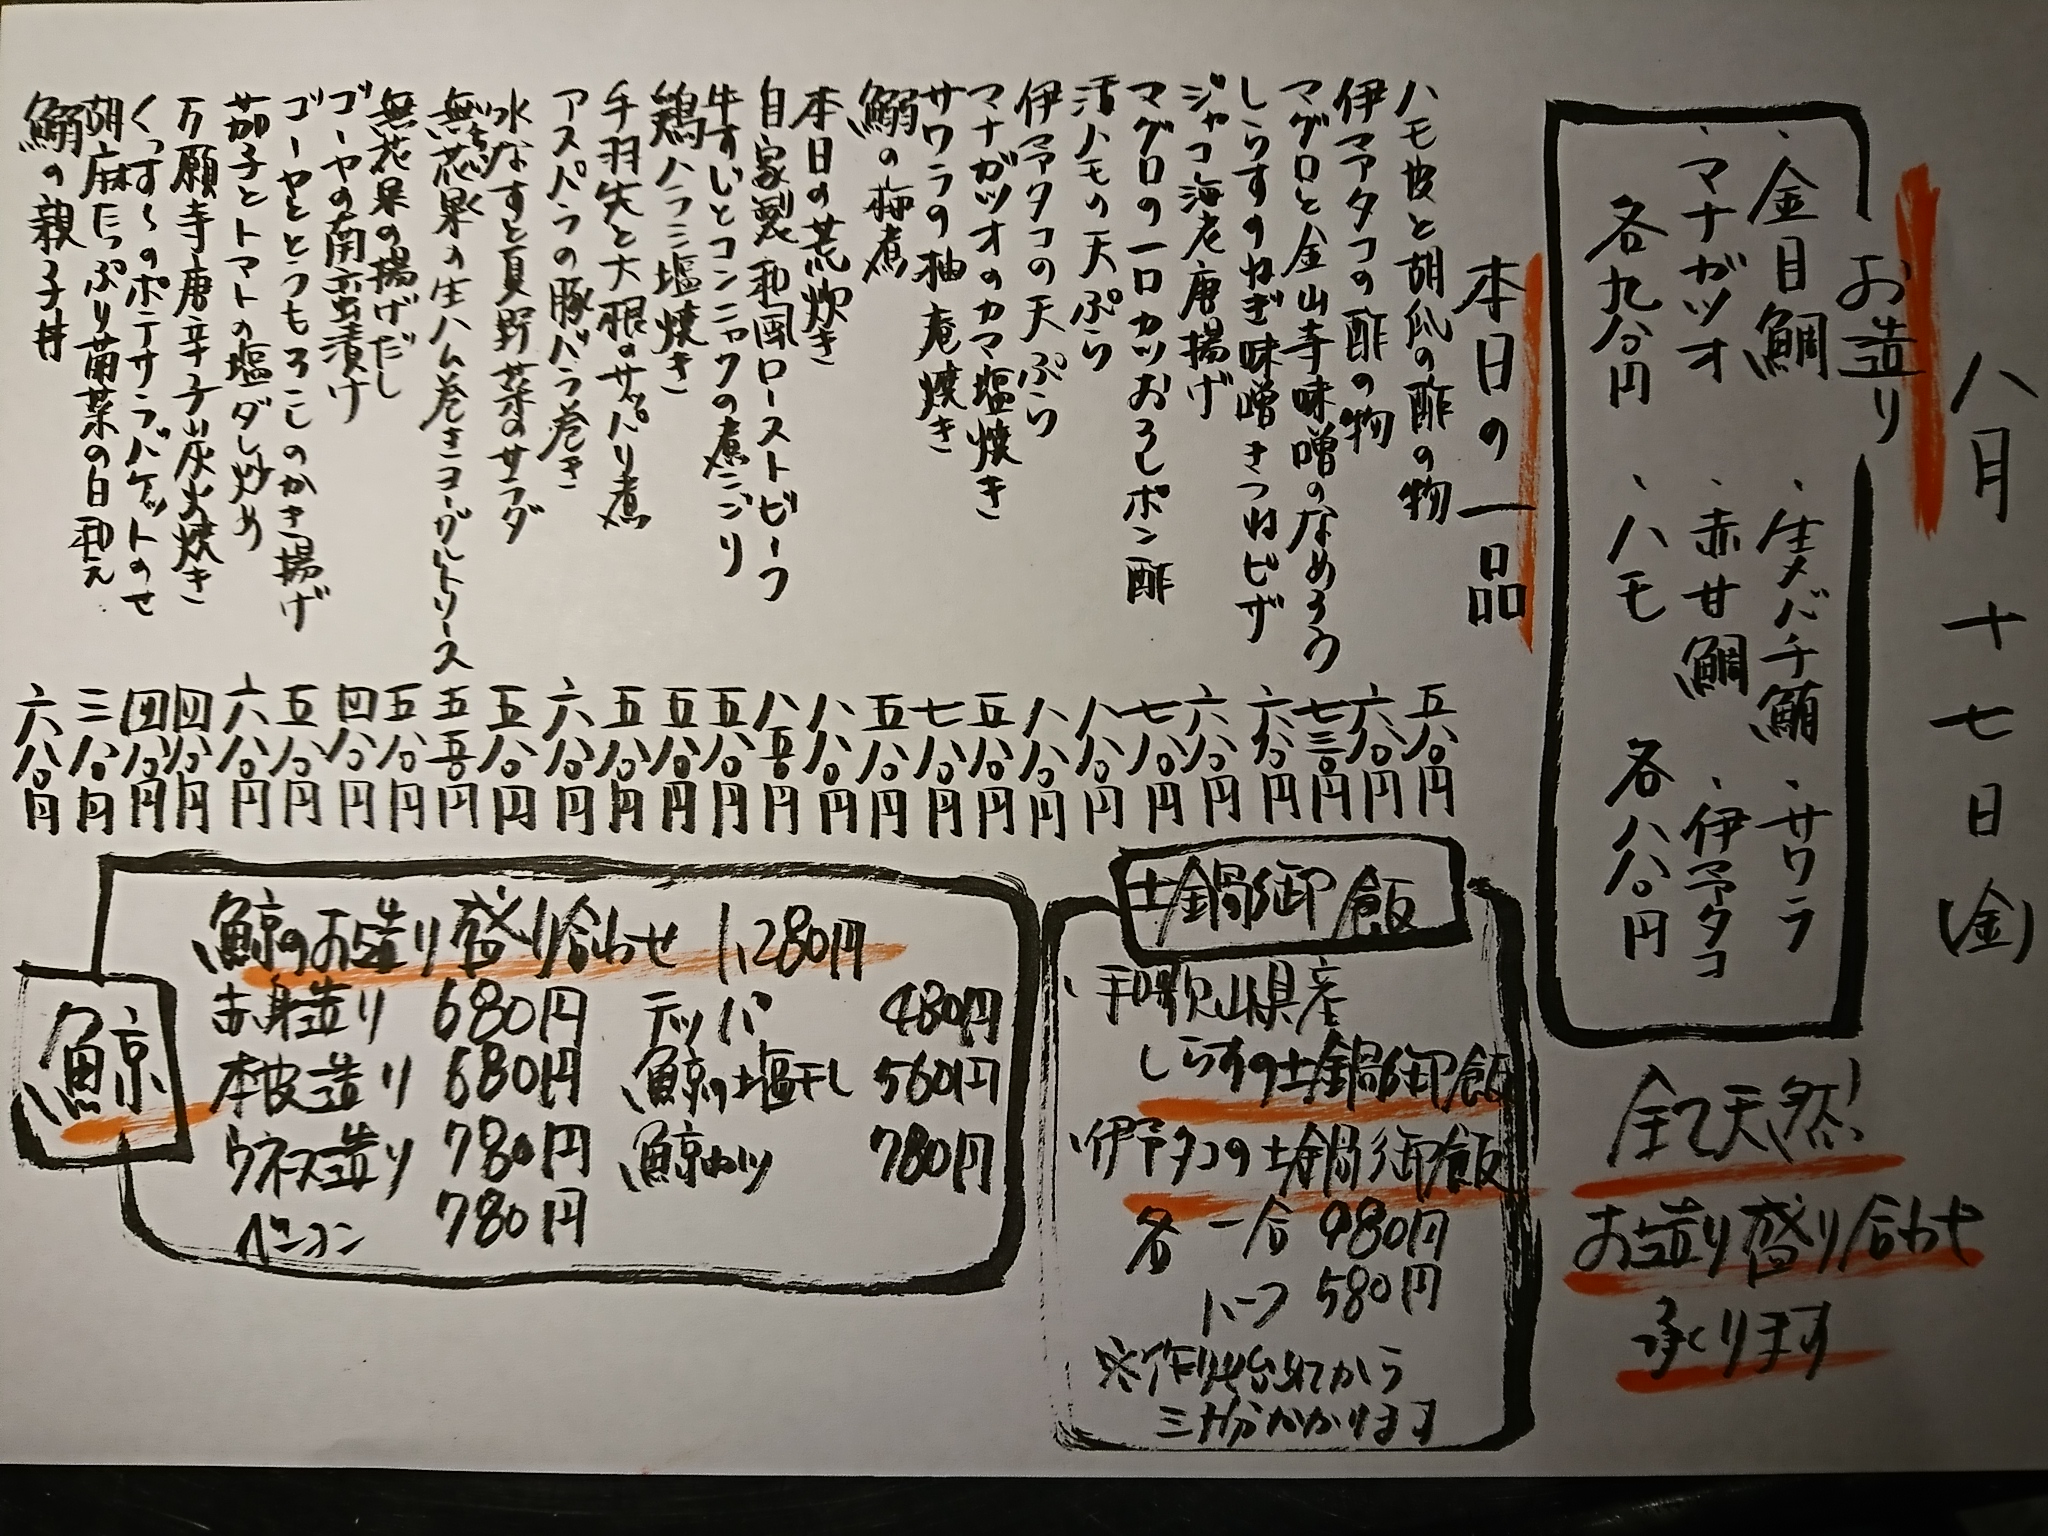 八月十七日(金)
お造り
、金目鯛 、生メバチ鮪 、サワラ
、マナガツオ 、赤甘鯛 、伊予タコ
各九八〇円 、ハモ 各八八〇円
全て天然!
お造り盛り合わせ
承くります
本日の一品
ハモ皮と胡瓜の酢の物 五八〇円
伊予タコの酢の物 六八〇円
マグロと金山寺味噌のなめろう 七三〇円
しらすのねぎ味噌きつねピザ 六八〇円
ジャコ海老唐揚げ 六八〇円
マグロの一口カツおろしポン酢 七八〇円
活ハモの天ぷら 八八〇円
伊予タコの天ぷら 八八〇円
マナガツオのカマ塩焼き 五八〇円
サワラの柚庵焼き 七八〇円
鰯の梅煮 五八〇円
本日の荒炊き 八八〇円
自家製和風ローストビーフ 八五〇円
牛すじとコンニャクの煮こごり 五八〇円
鶏ハラミ塩焼き 五八〇円
手羽先と大根のサッパリ煮 五八〇円
アスパラの豚バラ巻き 六八〇円
水なすと夏野菜のサラダ 五八〇円
無花果の生ハム巻きヨーグルトソース 五五〇円
無花果の揚げだし 五八〇円
ゴーヤの南蛮漬け 四八〇円
ゴーヤととうもろこしのかき揚げ 五八〇円
茄子とトマトの塩ダレ炒め 六八〇円
万願寺唐辛子炭火焼き 四八〇円
くっす〜のポテサラバケットのせ 四八〇円
胡麻たっぷり菊菜の白和え 三八〇円
鰯の親子丼 六八〇円
土鍋御飯
、和歌山県産
しらすの土鍋御飯
、伊予タコの土鍋御飯
各 一合 980円
ハーフ 580円
※作り始めてから
三十分かかります
鯨
鯨のお造り盛り合わせ 1,280円
赤身造り 680円 テッパ 480円
本皮造り 680円 鯨の塩干し 560円
ウネス造り 780円 鯨カツ 780円
ベーコン 780円